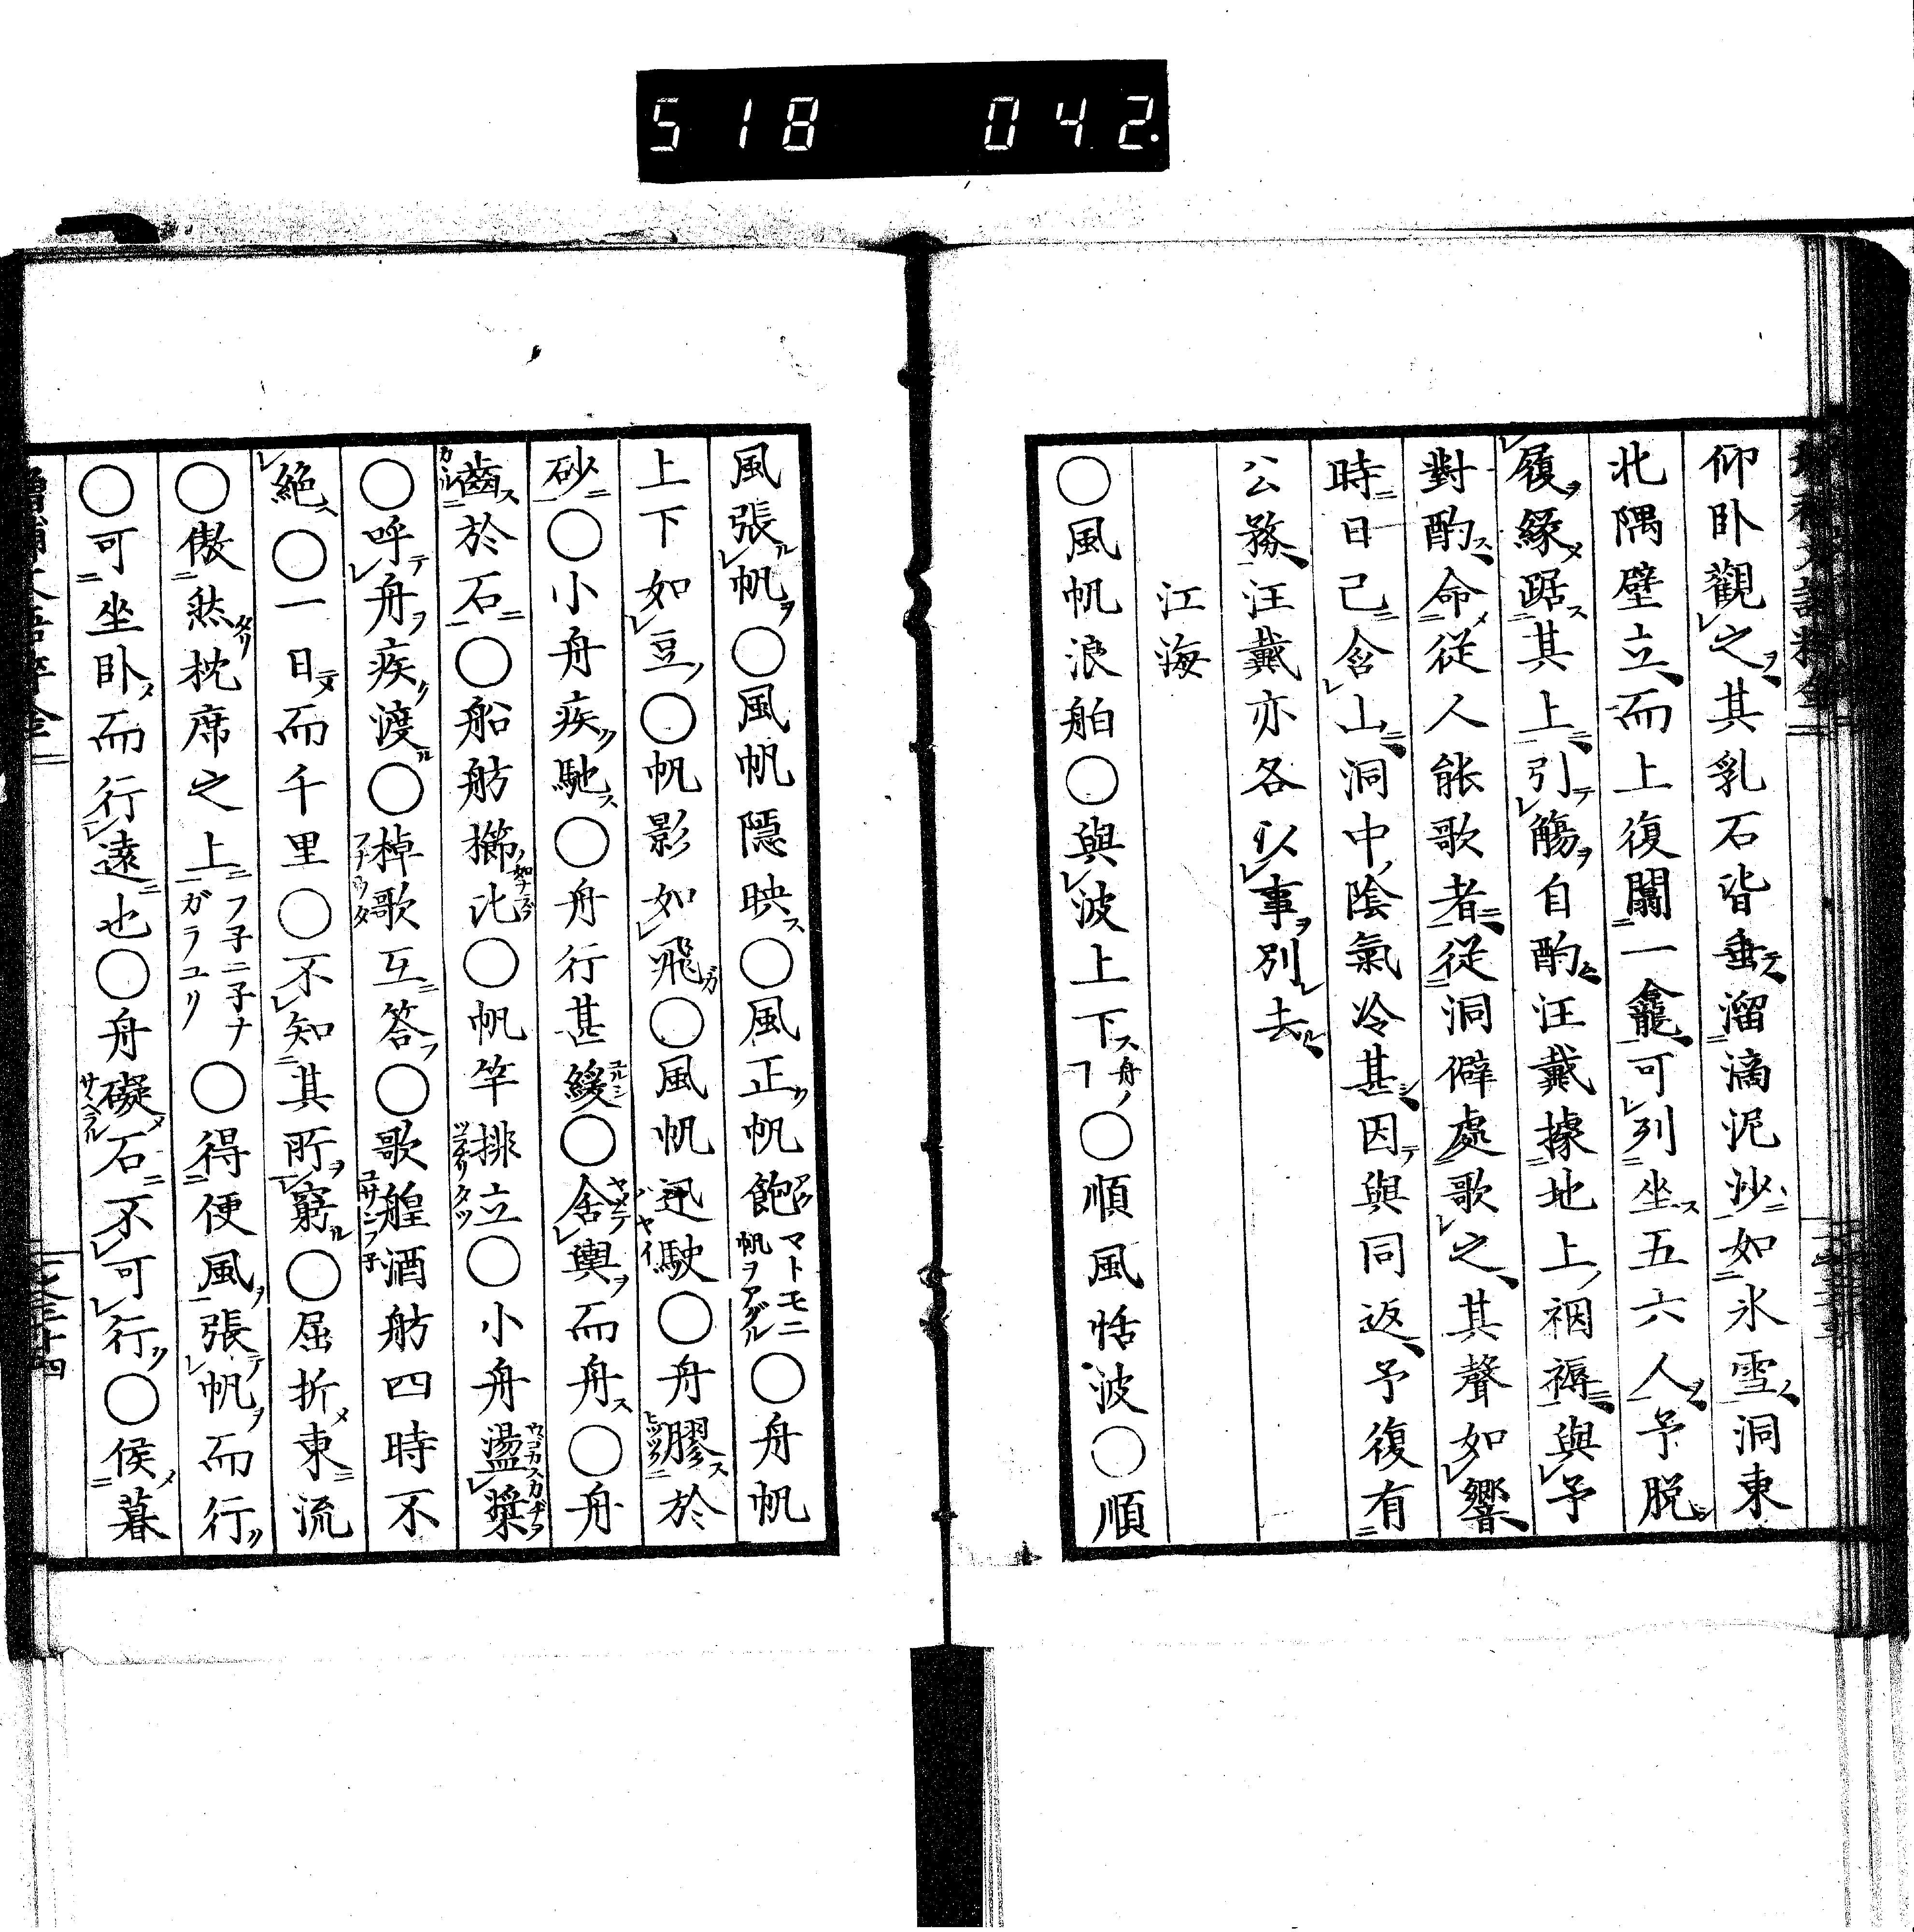 518 042.
仰卧觀之其乳石皆垂溜滴泥沙如氷雪洞東
北隅壁立而上復闢一龕可列坐五六人予脱
履縁踞其上引觴自酌汪戴據地上裀褥與予
對酌命從人能歌者從洞僻處歌之其聲如響
時日已含山洞中陰氣冷甚因與同返予復有
公務汪戴亦各以事別去
江海
〇風帆浪舶〇與波上下〇順風恬波〇順
風張帆〇風帆隱映〇風正帆飽マトモニ帆ヲアグル〇舟帆
上下如豆〇帆影如飛〇風帆迅駛〇舟膠於
砂〇小舟疾馳〇舟行甚緩〇舍輿而舟〇舟
齒於石〇船舫櫛比〇帆竿排立〇小舟盪槳
〇呼舟疾渡〇棹歌互答〇歌艎酒舫四時不
絶〇一日而千里〇不知其所窮〇屈折東流
〇傲然枕席之上フ子ニ子ナガラユリ〇得便風張帆而行
〇可坐卧而行遠也〇舟礙石不可行〇侯暮